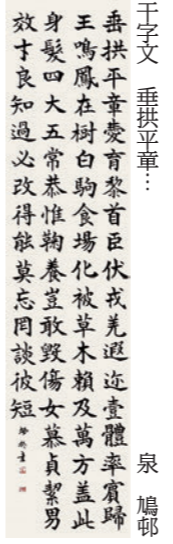 千字文 垂拱平童… 泉 鳩邨
垂拱平章愛育黎首臣伏戎羌遐迩壹體率賓歸
王鳴鳳在樹白駒食場化被草木賴及萬方盖此
身髮四大五常恭惟鞠養豈敢毀傷女慕貞絜男
效才良知過必改得能莫忘罔談彼短